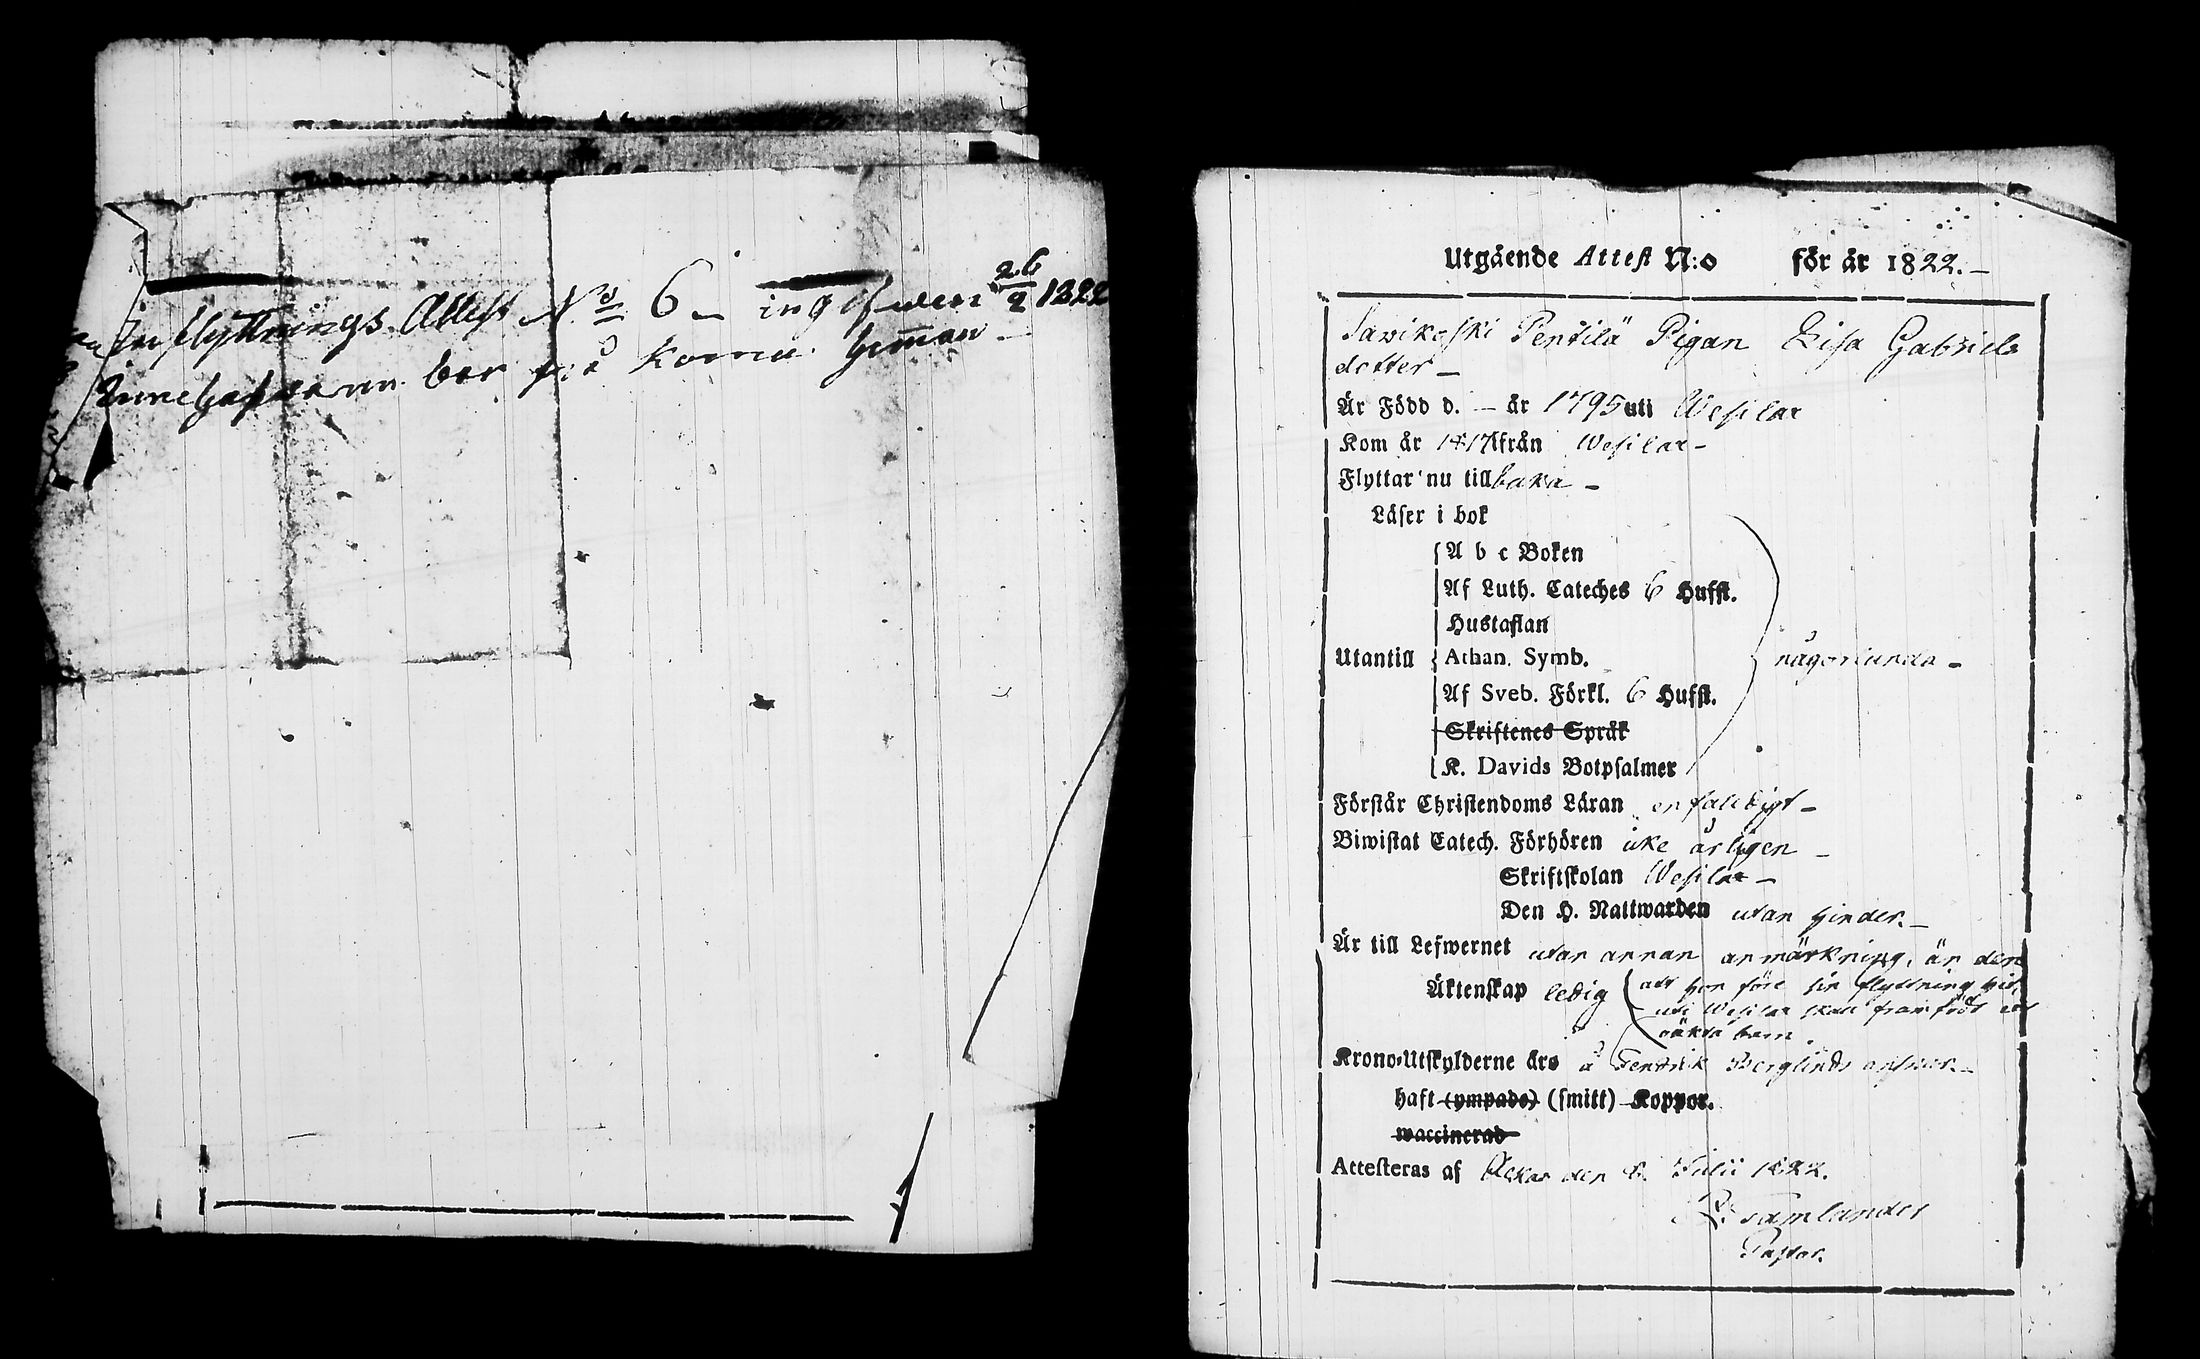 Inflyttnings Attest No 6 – ingifwen 26/9 1822
Innehafwaren bor på Korru hemman –
Utgående Attest N:o för år 1822. –
Sawikoski Pentilä Pigan Lisa Gabriels
dotter –
Är Född d. – år 1795 uti Wesilax
Kom år 1817 från Wesilax –
Flyttar nu till baka –
Läser i bok
A b c Boken
Af Luth. Cateches 6 Hufst.
Hustaflan
Utantill Athan. Symb. någorlunda –
Af Sveb. Förkl. 6 Hufst.
Skriftenes Språk
K. Davids Botpsalmer
Förstår Christendoms Läran enfaldigt –
Biwistat Catech. Förhören icke årligen –
Skriftskolan Wesilax –
Den H. Nattwarden utan hinder. –
Är till Lefwernet utan annan anmärkning, än den
Äktenskap ledig att hon före sin flyttning hit,
uti Wesilax skall framfödt ett
oäkta barn.
Krono-Utskylderne äro å Fendrik Berglinds answar. –
haft (ympade) (smitt) Koppor.
waccinerad
Attesteras af Ackas den 8 Julii 1822.
Samlander
Pastor.